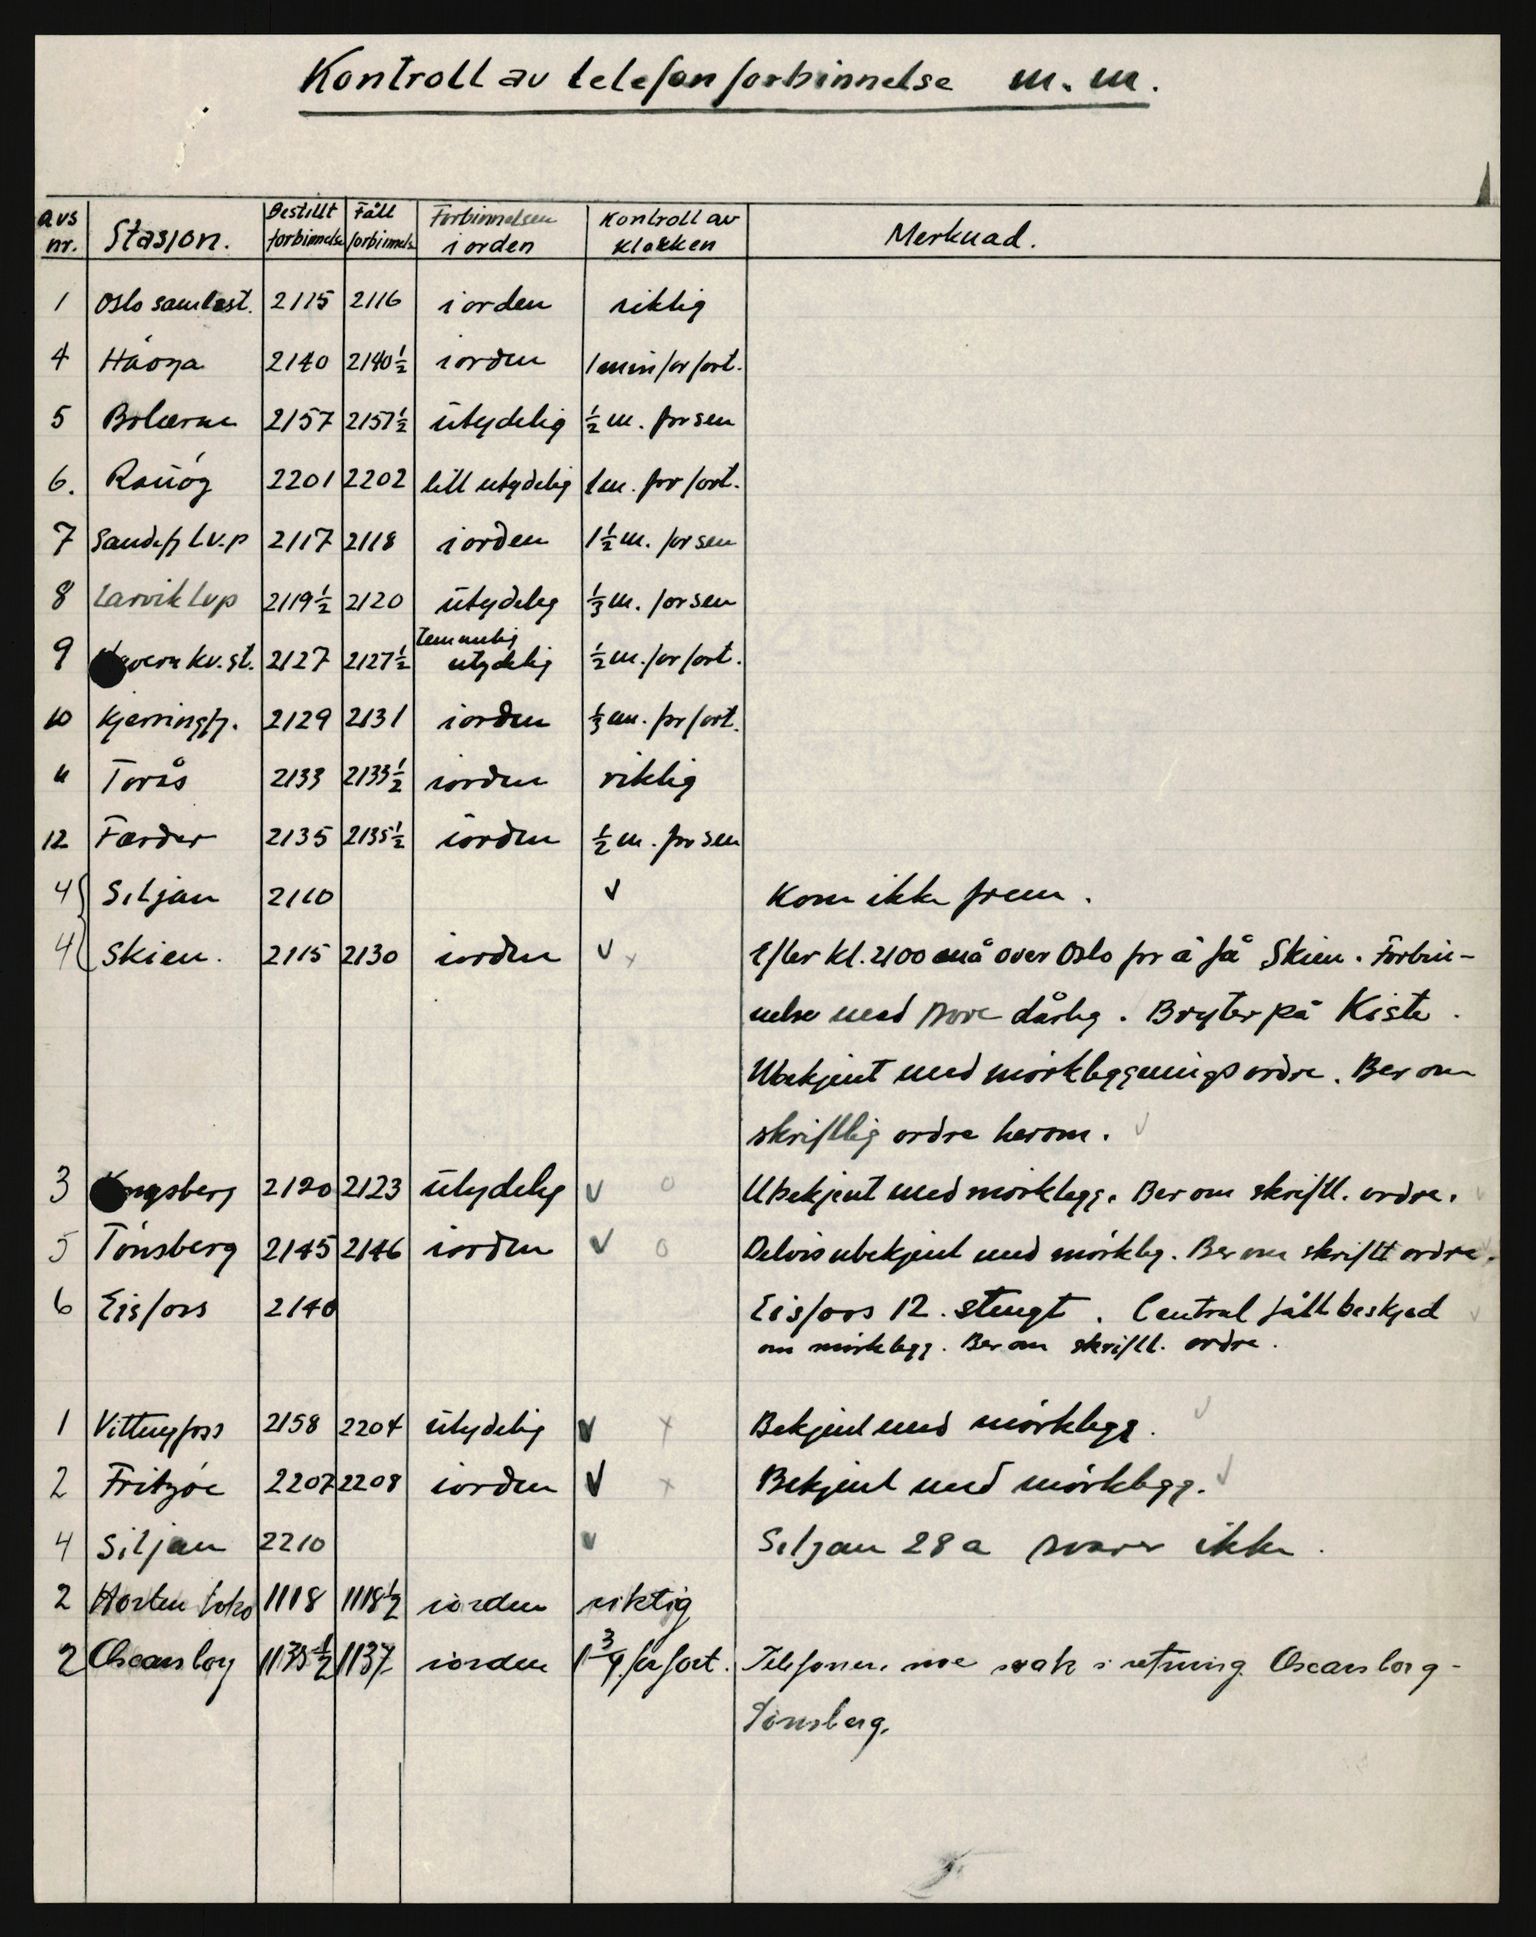 Kontroll av telefonforbinnelse m.m.
avs nr. Stasjon. Bestillt forbinnelse Fått forbinnelse Forbinnelsen i orden Kontroll av klokken Merknad.
1 Oslo samlest. 2115 2116 i orden riktig
4 Håøya 2140 2140½ i orden 1 min for fort.
5 Bolærne 2157 2157½ utydelig ½ m. for sen
6. Rauøy 2201 2202 litt utydelig 1 m. for fort.
7 Sandefj Lv.p 2117 2118 i orden 1½ m. for sen
8 Larvik Lvp 2119½ 2120 utydelig ⅓ m. for sen
9 kv.st. 2127 2127½ Temmelig utydelig ½ m. for fort.
10 Kjerringfj. 2129 2131 i orden ⅓ m. for fort.
11 Torås 2133 2133½ i orden riktig
12 Færder 2135 2135½ i orden ½ m. for sen
4 Siljan 2110 v Kom ikke frem.
4 Skien. 2115 2130 i orden v x Efter kl. 2100 må over Oslo for å få Skien. Forbin-
nelse med dårlig. Bryter på Kiste.
Ubekjent med mørkleggningsordre. Ber om
skriftlig ordre herom. v
3 Kongsberg 2120 2123 utydelig v o Ubekjent med mørklegg. Ber om skriftl. ordre. v
5 Tønsberg 2145 2146 i orden v o Delvis ubekjent med mørkleg. Ber om skriftl ordre.
6 Eisfoss 2140 Eisfoss 12. stengt. Central fått beskjed v
om mørklegg. Ber om skriftl. ordre.
1 Vittingfoss 2158 2204 utydelig v x Bekjent med mørklegg. v
2 Fritzøe 2207 2208 i orden v x Bekjent med mørklegg. v
4 Siljan 2210 v Siljan 28a svarer ikke.
2 Horten 1118 1118½ i orden riktig
2 Oscarsborg 1135½ 1137 i orden 1¾ for fort. Telefonen noe svak i retning Oscarsborg -
Tønsberg.